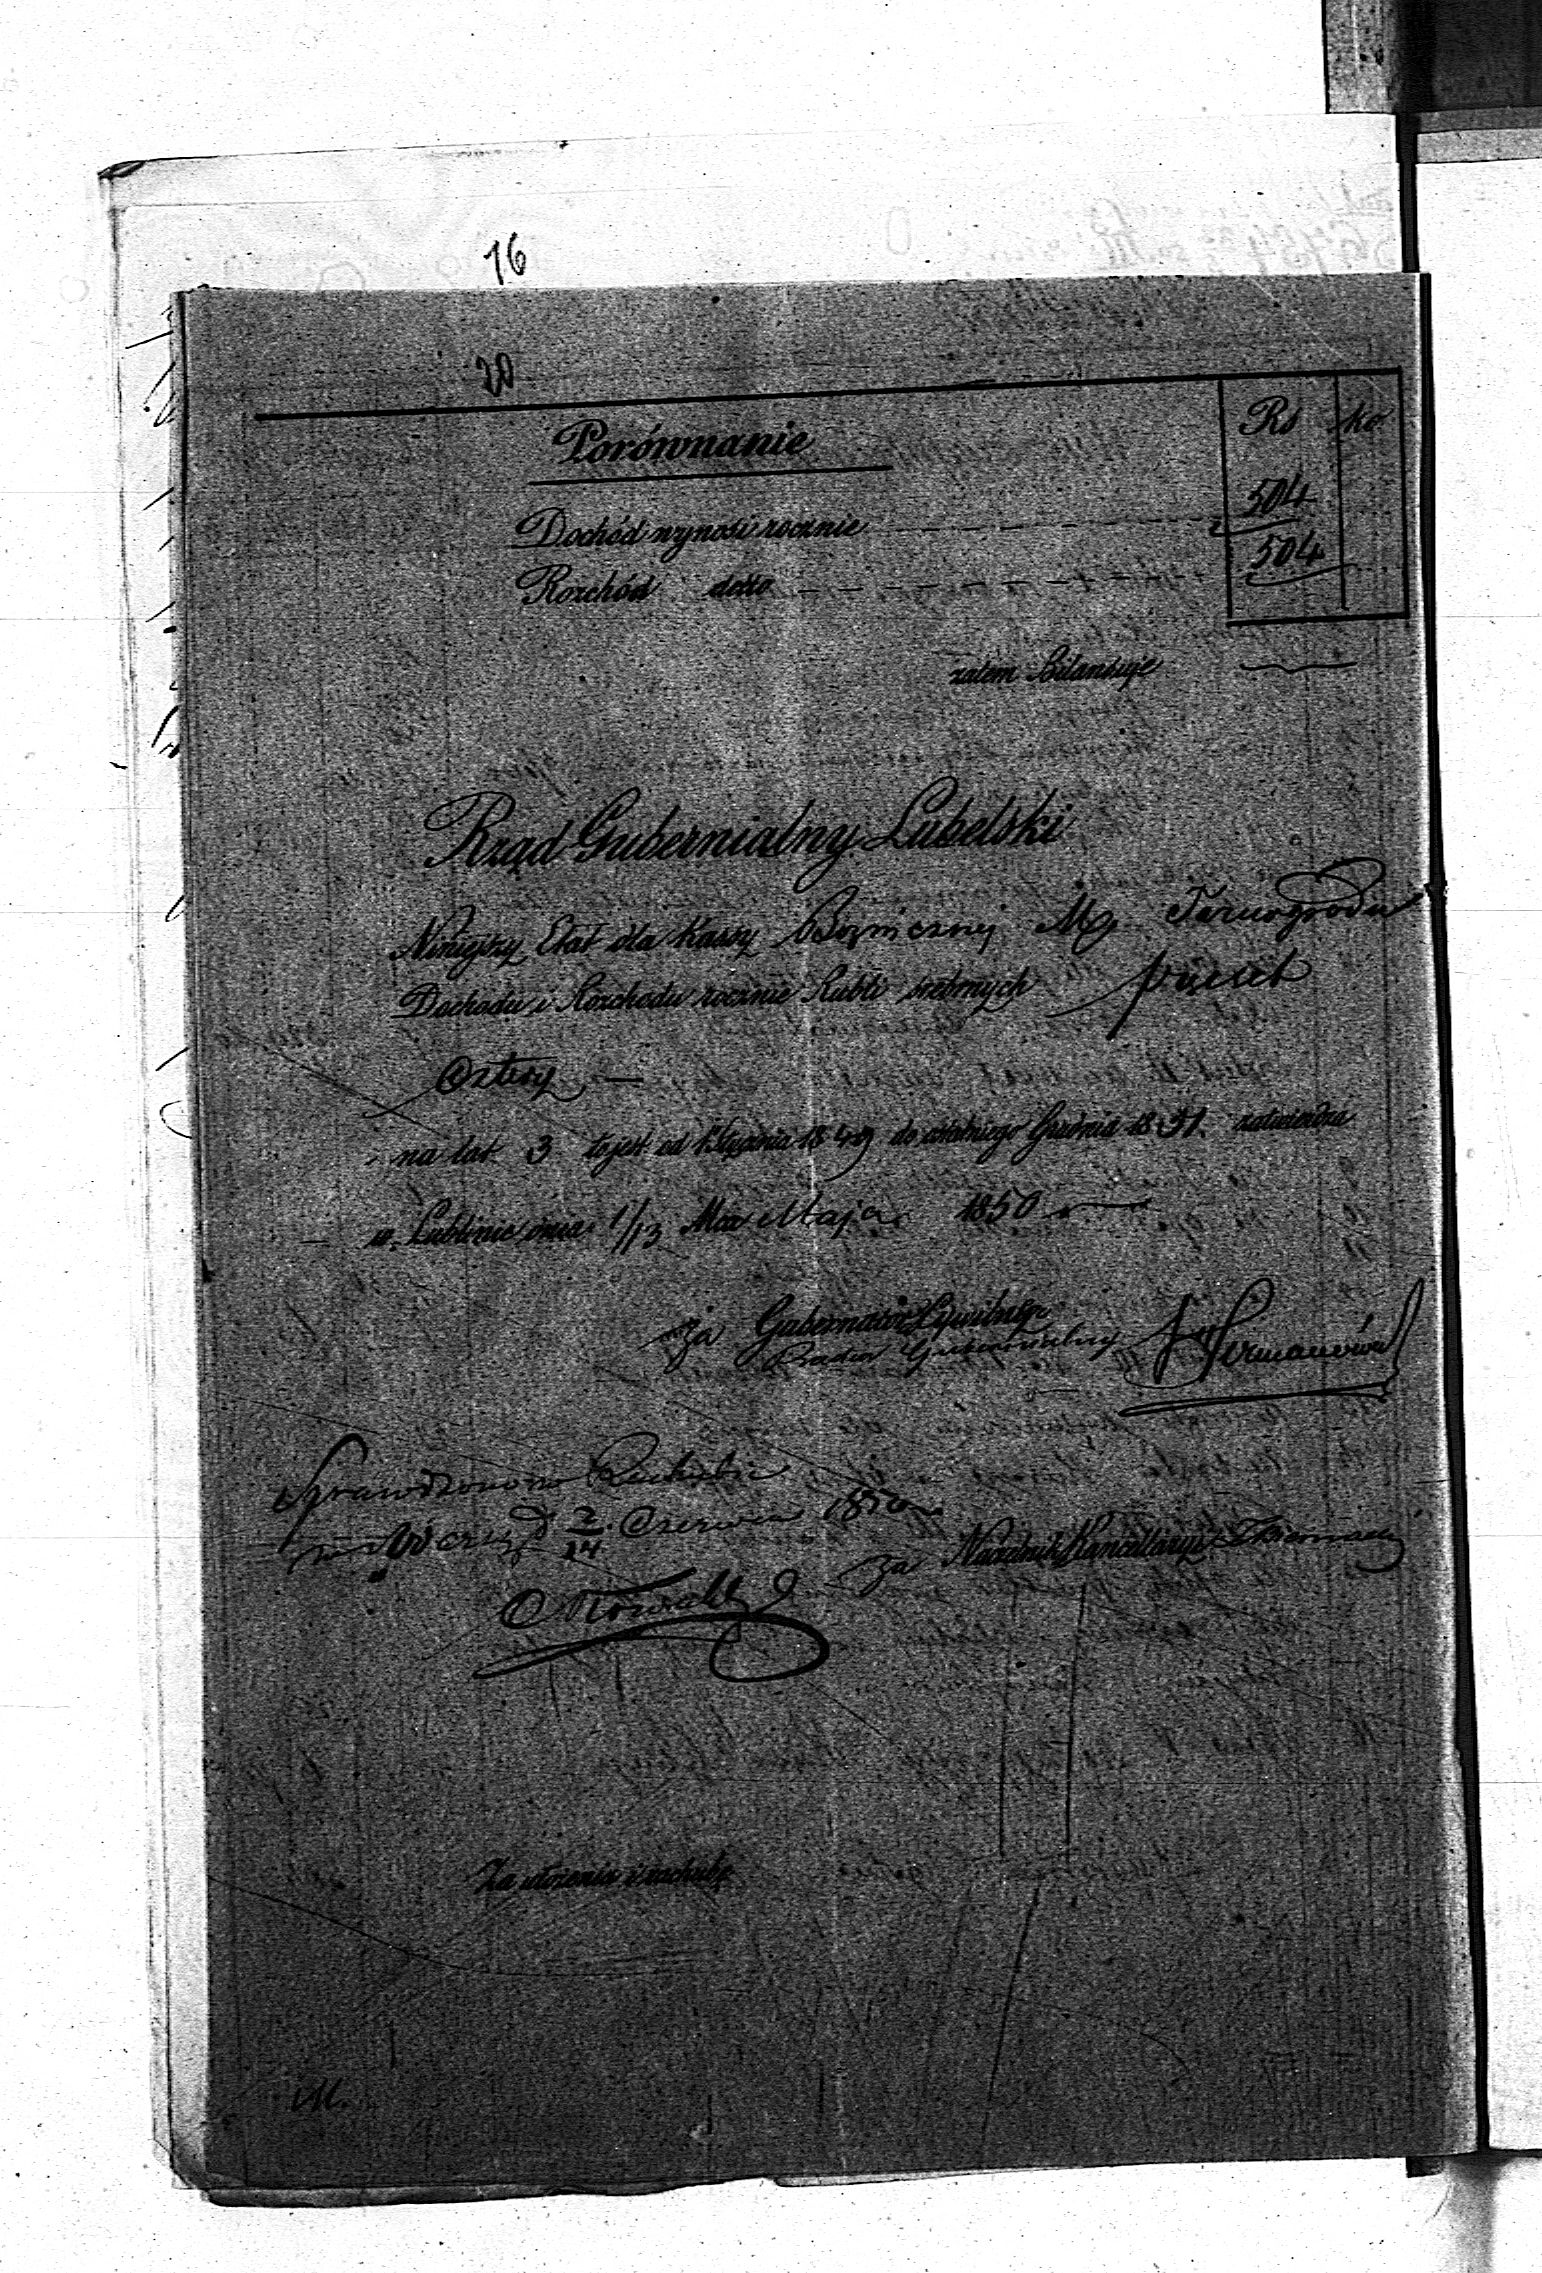 16
20
Rs ko
Porównanie
Dochód wynosi rocznie 504
Rozchód detto 504
zatem Bilansuje
Rząd Gubernialny Lubelski
Niniejszy Etat dla Kassy Bożniczney M. Tarnogrodu
Dochodu i Rozchodu rocznie Rubli srebrnych pięćset
Cztery
na lat 3 to jest od 1 Stycznia 1849 do ostatniego Grudnia 1851. zatwierdza
w Lublinie dnia 1/13 Mca Maja 1850 r
za Gubernatora Cywilnego
Radca Gubernialny
Sprawdzono w
d 2/14 Czerwca 1850
za Naczelnik Kancellaryi
Za ułożenie i rachubę
M.